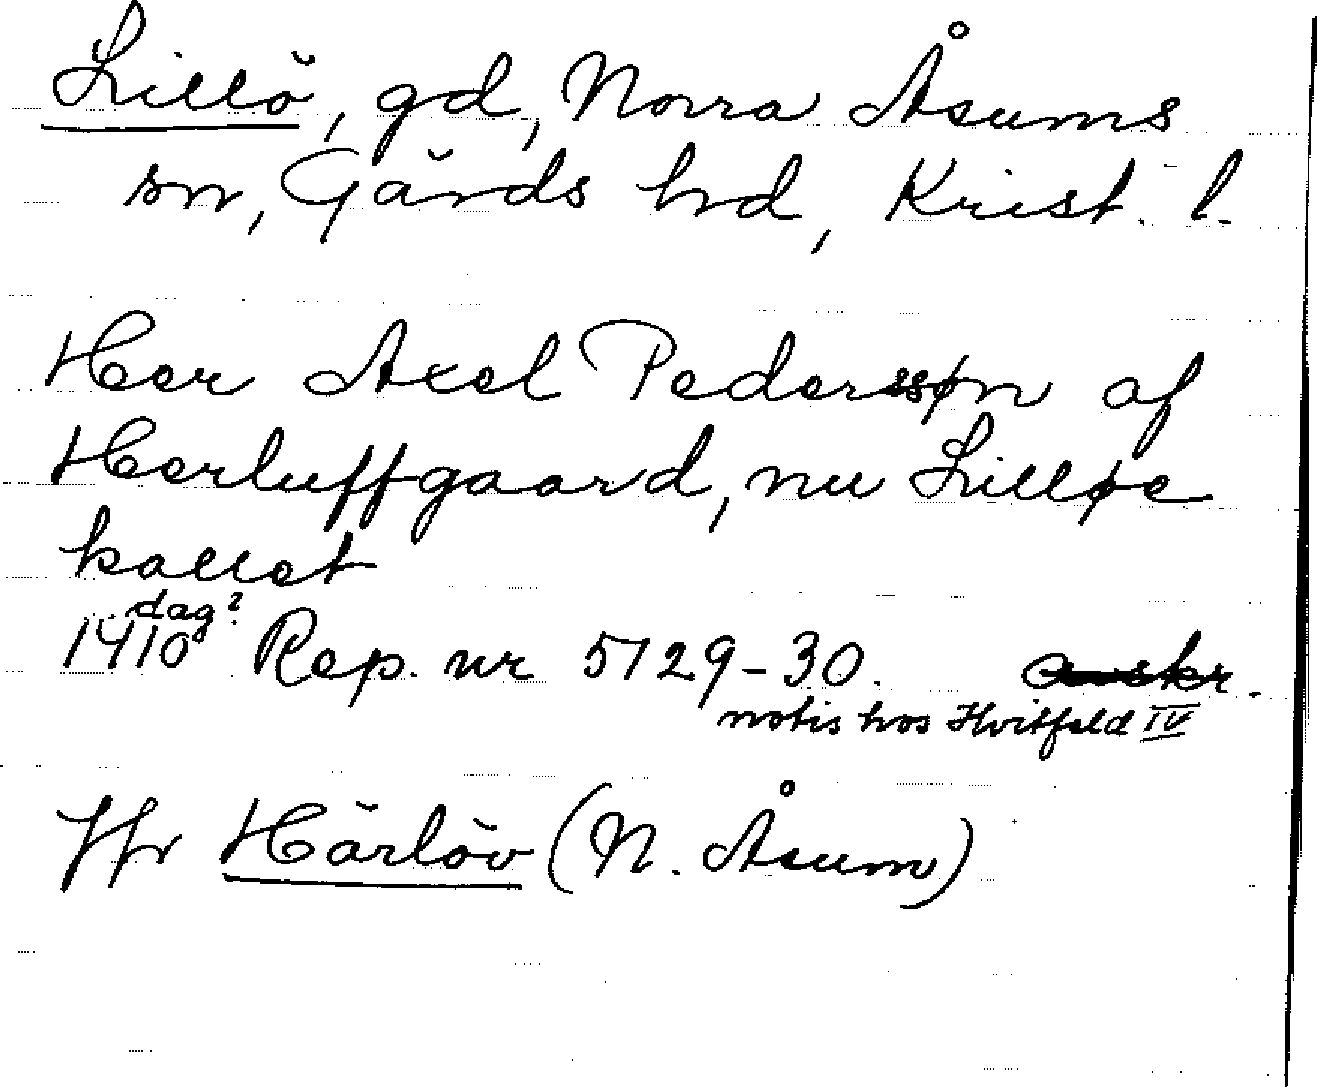 Lillö, gd, Norra Åsums
sn, Gärds hd, Krist. l.
Her Axel Pederssøn af
Herluffgaard, nu Lilløe
kallet
dag?
1410 Rep. nr 5129-30. avskr.
notis hos Hvitfeld IV
Jfr Härlöv (N. Åsum)